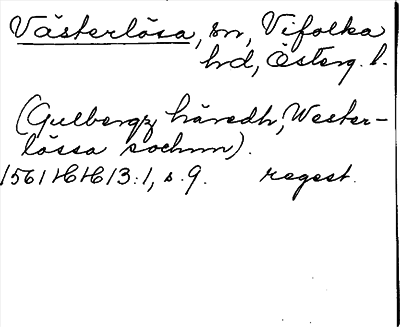 Västerlösa, sn, Vifolka
hd, Österg. l.
(Gulbergz häredh, Wester-
lössa sochnn).
1561 HH 13:1, s. 9. regest.